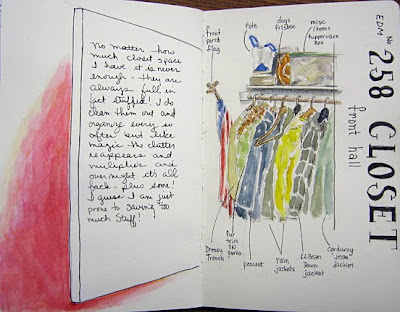 No matter how
much closet space
I have it is never
enough - they are
always full in
fact stuffed! I do
clean them out and
organize every so
often but like
magic the clutter
reappears and
multiplies and
overnight it's all
back - plus some!
I guess I am just
prone to saving too
much stuff!
front
porch
flag
tote
dogs
frisbee
misc
items
tupperware
box
EDM No
258 CLOSET
front hall
Dressy
Trench
fur
trim
ski
parka
peacoat
rain
jackets
LL Bean
Down
jacket
corduroy
jean
jacket